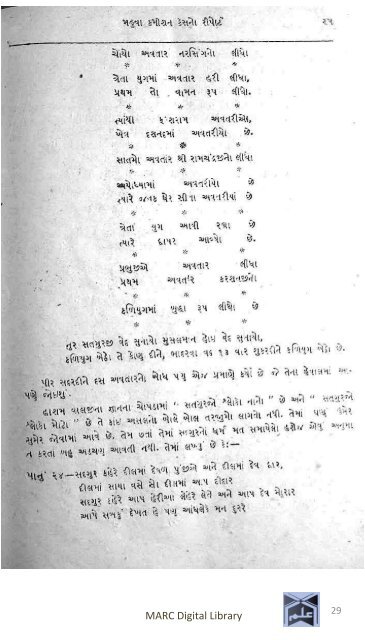 મહુવા કમીશન કેસનો રીપોર્ટ ૨૫
ચોથો અવતાર નરસિંગનો લીધો
* * *
ત્રેતા યુગમાં અવતાર હરી લીધા,
પ્રથમ તો વામન રૂપ લીધો.
* * *
ત્યાંથી ફરશરામ અવતરીઓ,
ખેત્ર દશનદમાં અવતરીયો છે.
* * *
સાતમો અવતાર શ્રી રામચંદ્રજીનો લીધો
* * *
અયોધ્યામાં અવતરીયો છે
ત્યારે જનક ઘેર સીતા અવતરીયાં છે
* * *
ત્રેતા યુગ આવી રહ્યા છે
ત્યારે દ્વાપર આવ્યો છે.
* *
પ્રભુજીએ અવતાર લીધા
પ્રથમ અવતાર કરશનજીનો
* * *
કળિયુગમાં બુદ્ધા રૂપ લીધો છે
* * *
નુર સતગુરજી વેદ સુનાયો મુસલમાન હોય વેદ સુનાયો,
કળિયુગ બેઠો તે કોણ દીને, ભાદરવા વદ ૧૩ વાર શુકરદીને કળિયુગ બેઠો છે.
પીર સદરદીને દસ અવતારનો બોધ પણ એજ પ્રમાણે કર્યો છે જે તેના હેવાલમાં આપણે જોઇશું.
દારામ વાલજીના જ્ઞાનના ચોપડામાં " સતગુરનો શ્લોકો નાનો " છે અને " સતગુરનો
શ્લોકો મોટો " છે તે કાંઇ અસલનો બોલે બોલ તરજુમો લાગતો નથી. તેમાં ઘણું ફેર
સુમેર જોવામાં આવે છે. તેમ છતાં તેમાં સતગુરનો ધર્મ મત સમાયેલો હશેજ એવું અનુમાન
ન કરતાં બહુ અડચણ આવતી નથી. તેમાં લખ્યું છે કે:—
પાનું ૨૪—સદગુર કહેરે દીલમાં દેવળ પુંજીએ અને દીલમાં દેવ દાર,
દીલમાં સાયા વસે સે। દીલમાં આપ દીદાર
સદગુર કહેરે આપ હોરીઆં લેહેરે લેતે અને આપ દેવ મોરાર
આપે સબકું દેખત હે પણ આંધલેકે મન દુરરે
MARC Digital Library 29